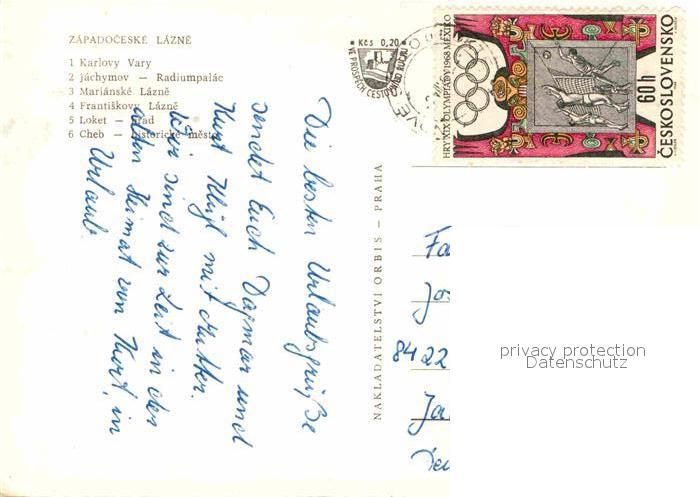 ZÁPADOČESKÉ LÁZNĚ
1 Karlovy Vary
2 jáchymov — Radiumpalác
3 Mariánské Lázně
4 Františkovy Lázně
5 Loket — hrad
6 Cheb — historické město
Die besten Urlaubsgrüße
sendet Euch Dagmar und
Kurt mit Mutter.
Wir sind zur Zeit in der
Heimat von Kurt, in
Urlaub
NAKLADATELSTVÍ ORBIS — PRAHA
Kčs 0,20
VE PROSPĚCH CESTOVNÍHO RUCHU
HRY XIX. OLYMPIÁDY 1968 MEXIKO
60 h
ČESKOSLOVENSKO
Fa
Jo
8422
Ja
privacy protection
Datenschutz